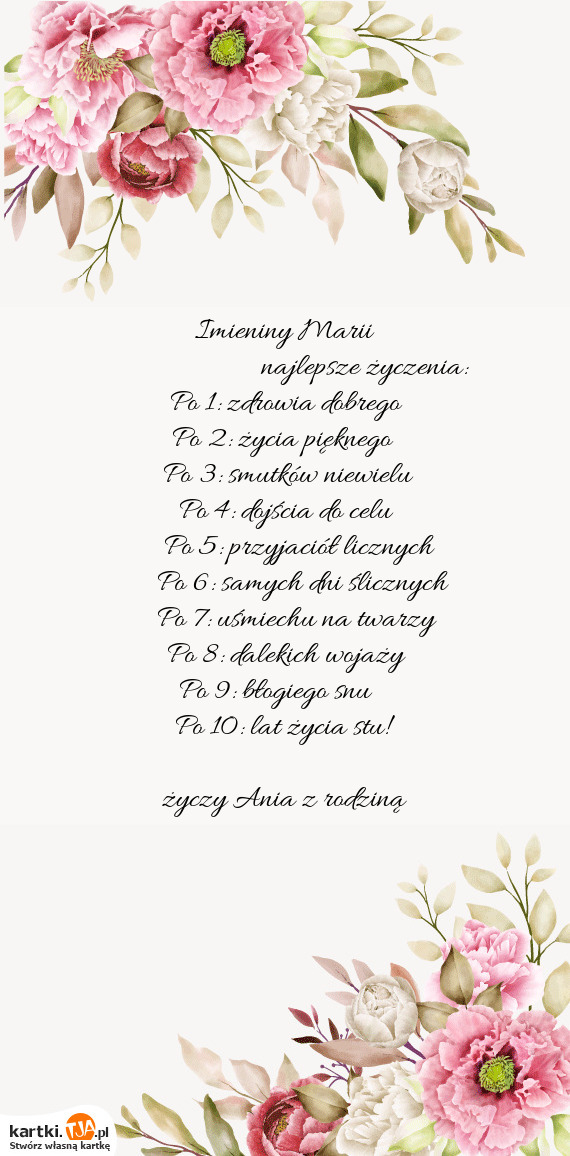 Imieniny Marii
najlepsze życzenia:
Po 1: zdrowia dobrego
Po 2: życia pięknego
Po 3: smutków niewielu
Po 4: dojścia do celu
Po 5: przyjaciół licznych
Po 6: samych dni ślicznych
Po 7: uśmiechu na twarzy
Po 8: dalekich wojaży
Po 9: błogiego snu
Po 10: lat życia stu!
życzy Ania z rodziną
kartki.TJA.pl
Stwórz własną kartkę